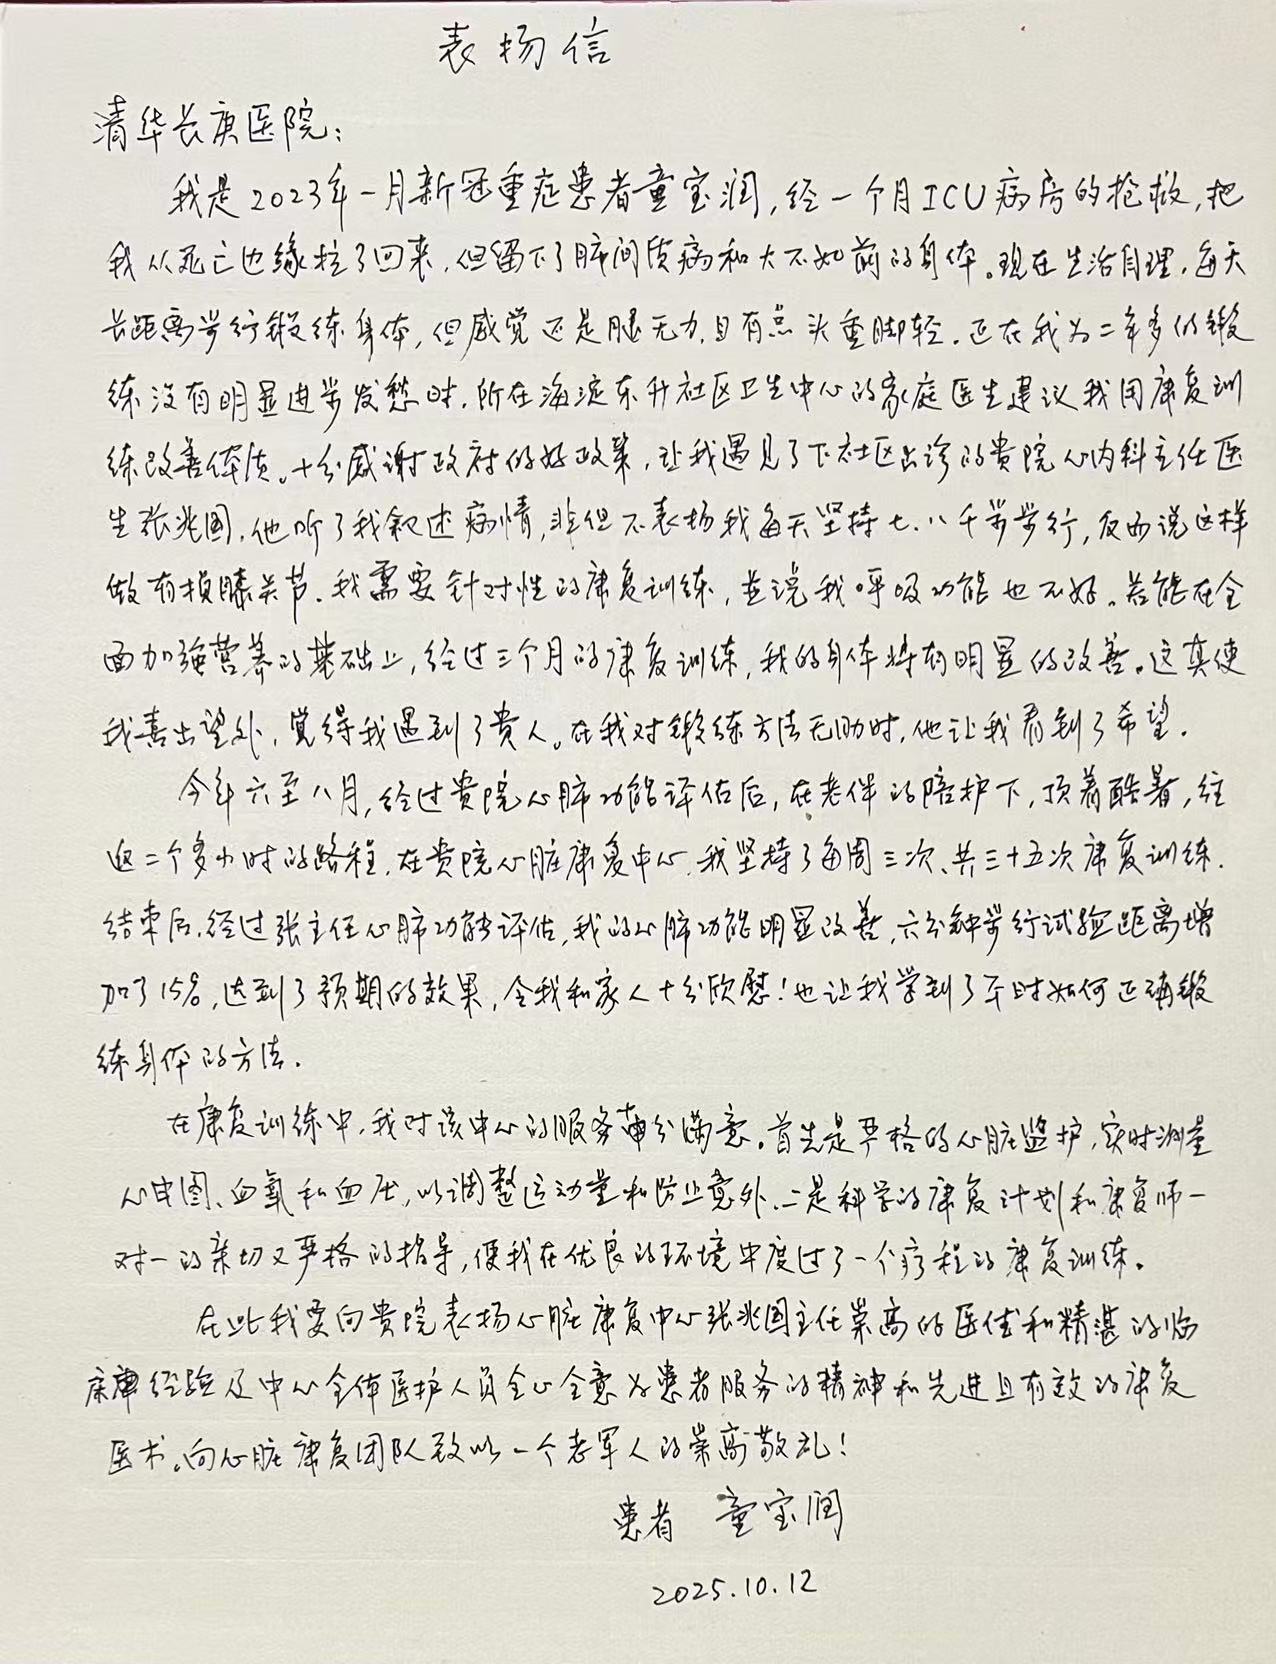 表扬信
清华长庚医院：
我是2023年一月新冠重症患者童宝润，经一个月ICU病房的抢救，把
我从死亡边缘拉了回来，但留下了肺间质病和大不如前的身体。现在生活自理，每天
长距离步行锻练身体，但感觉还是腿无力，且有点头重脚轻。正在我为二年多的锻
练没有明显进步发愁时，所在海淀东升社区卫生中心的家庭医生建议我用康复训
练改善体质。十分感谢政府的好政策，让我遇见了下社区出诊的贵院心内科主任医
生张兆国，他听了我叙述病情，非但不表扬我每天坚持七、八千步步行，反而说这样
做有损膝关节，我需要针对性的康复训练，并说我呼吸功能也不好。若能在全
面加强营养的基础上，经过三个月的康复训练，我的身体将有明显的改善。这真使
我喜出望外，觉得我遇到了贵人。在我对锻练方法无助时，他让我看到了希望。
今年六至八月，经过贵院心肺功能评估后，在老伴的陪护下，顶着酷暑，往
返二个多小时的路程，在贵院心脏康复中心，我坚持了每周三次、共三十五次康复训练．
结束后，经过张主任心肺功能评估，我的心肺功能明显改善，六分钟步行试验距离增
加了15%，达到了预期的效果，令我和家人十分欣慰！也让我学到了平时如何正确锻
练身体的方法．
在康复训练中，我对该中心的服务十分满意。首先是严格的心脏监护，实时测量
心电图、血氧和血压，以调整运动量和防止意外．二是科学的康复计划和康复师一
对一的亲切又严格的指导，使我在优良的环境中度过了一个疗程的康复训练。
在此我要向贵院表扬心脏康复中心张兆国主任崇高的医德和精湛的临
床经验及中心全体医护人员全心全意为患者服务的精神和先进且有效的康复
医术。向心脏康复团队致以一个老军人的崇高敬礼！
患者 童宝润
2025.10.12